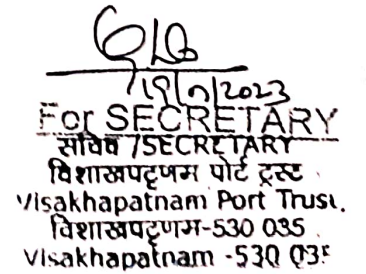 19/7/2023
For SECRETARY
सचिव /SECRETARY
विशाखपट्टणम पोर्ट ट्रस्ट
Visakhapatnam Port Trust.
विशाखपट्टणम-530 035
Visakhapatnam -530 035